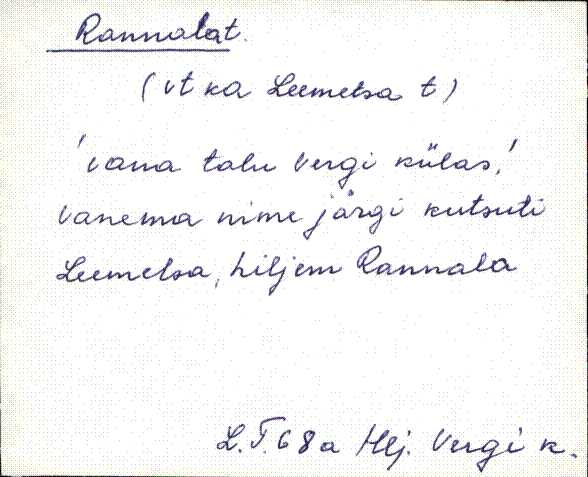 Rannala t.
(vt ka Leemetsa t)
'vana talu Vergi külas.'
Vanema nime järgi kutsuti
Leemetsa, hiljem Rannala
L.T. 68a Hlj. Vergi k.